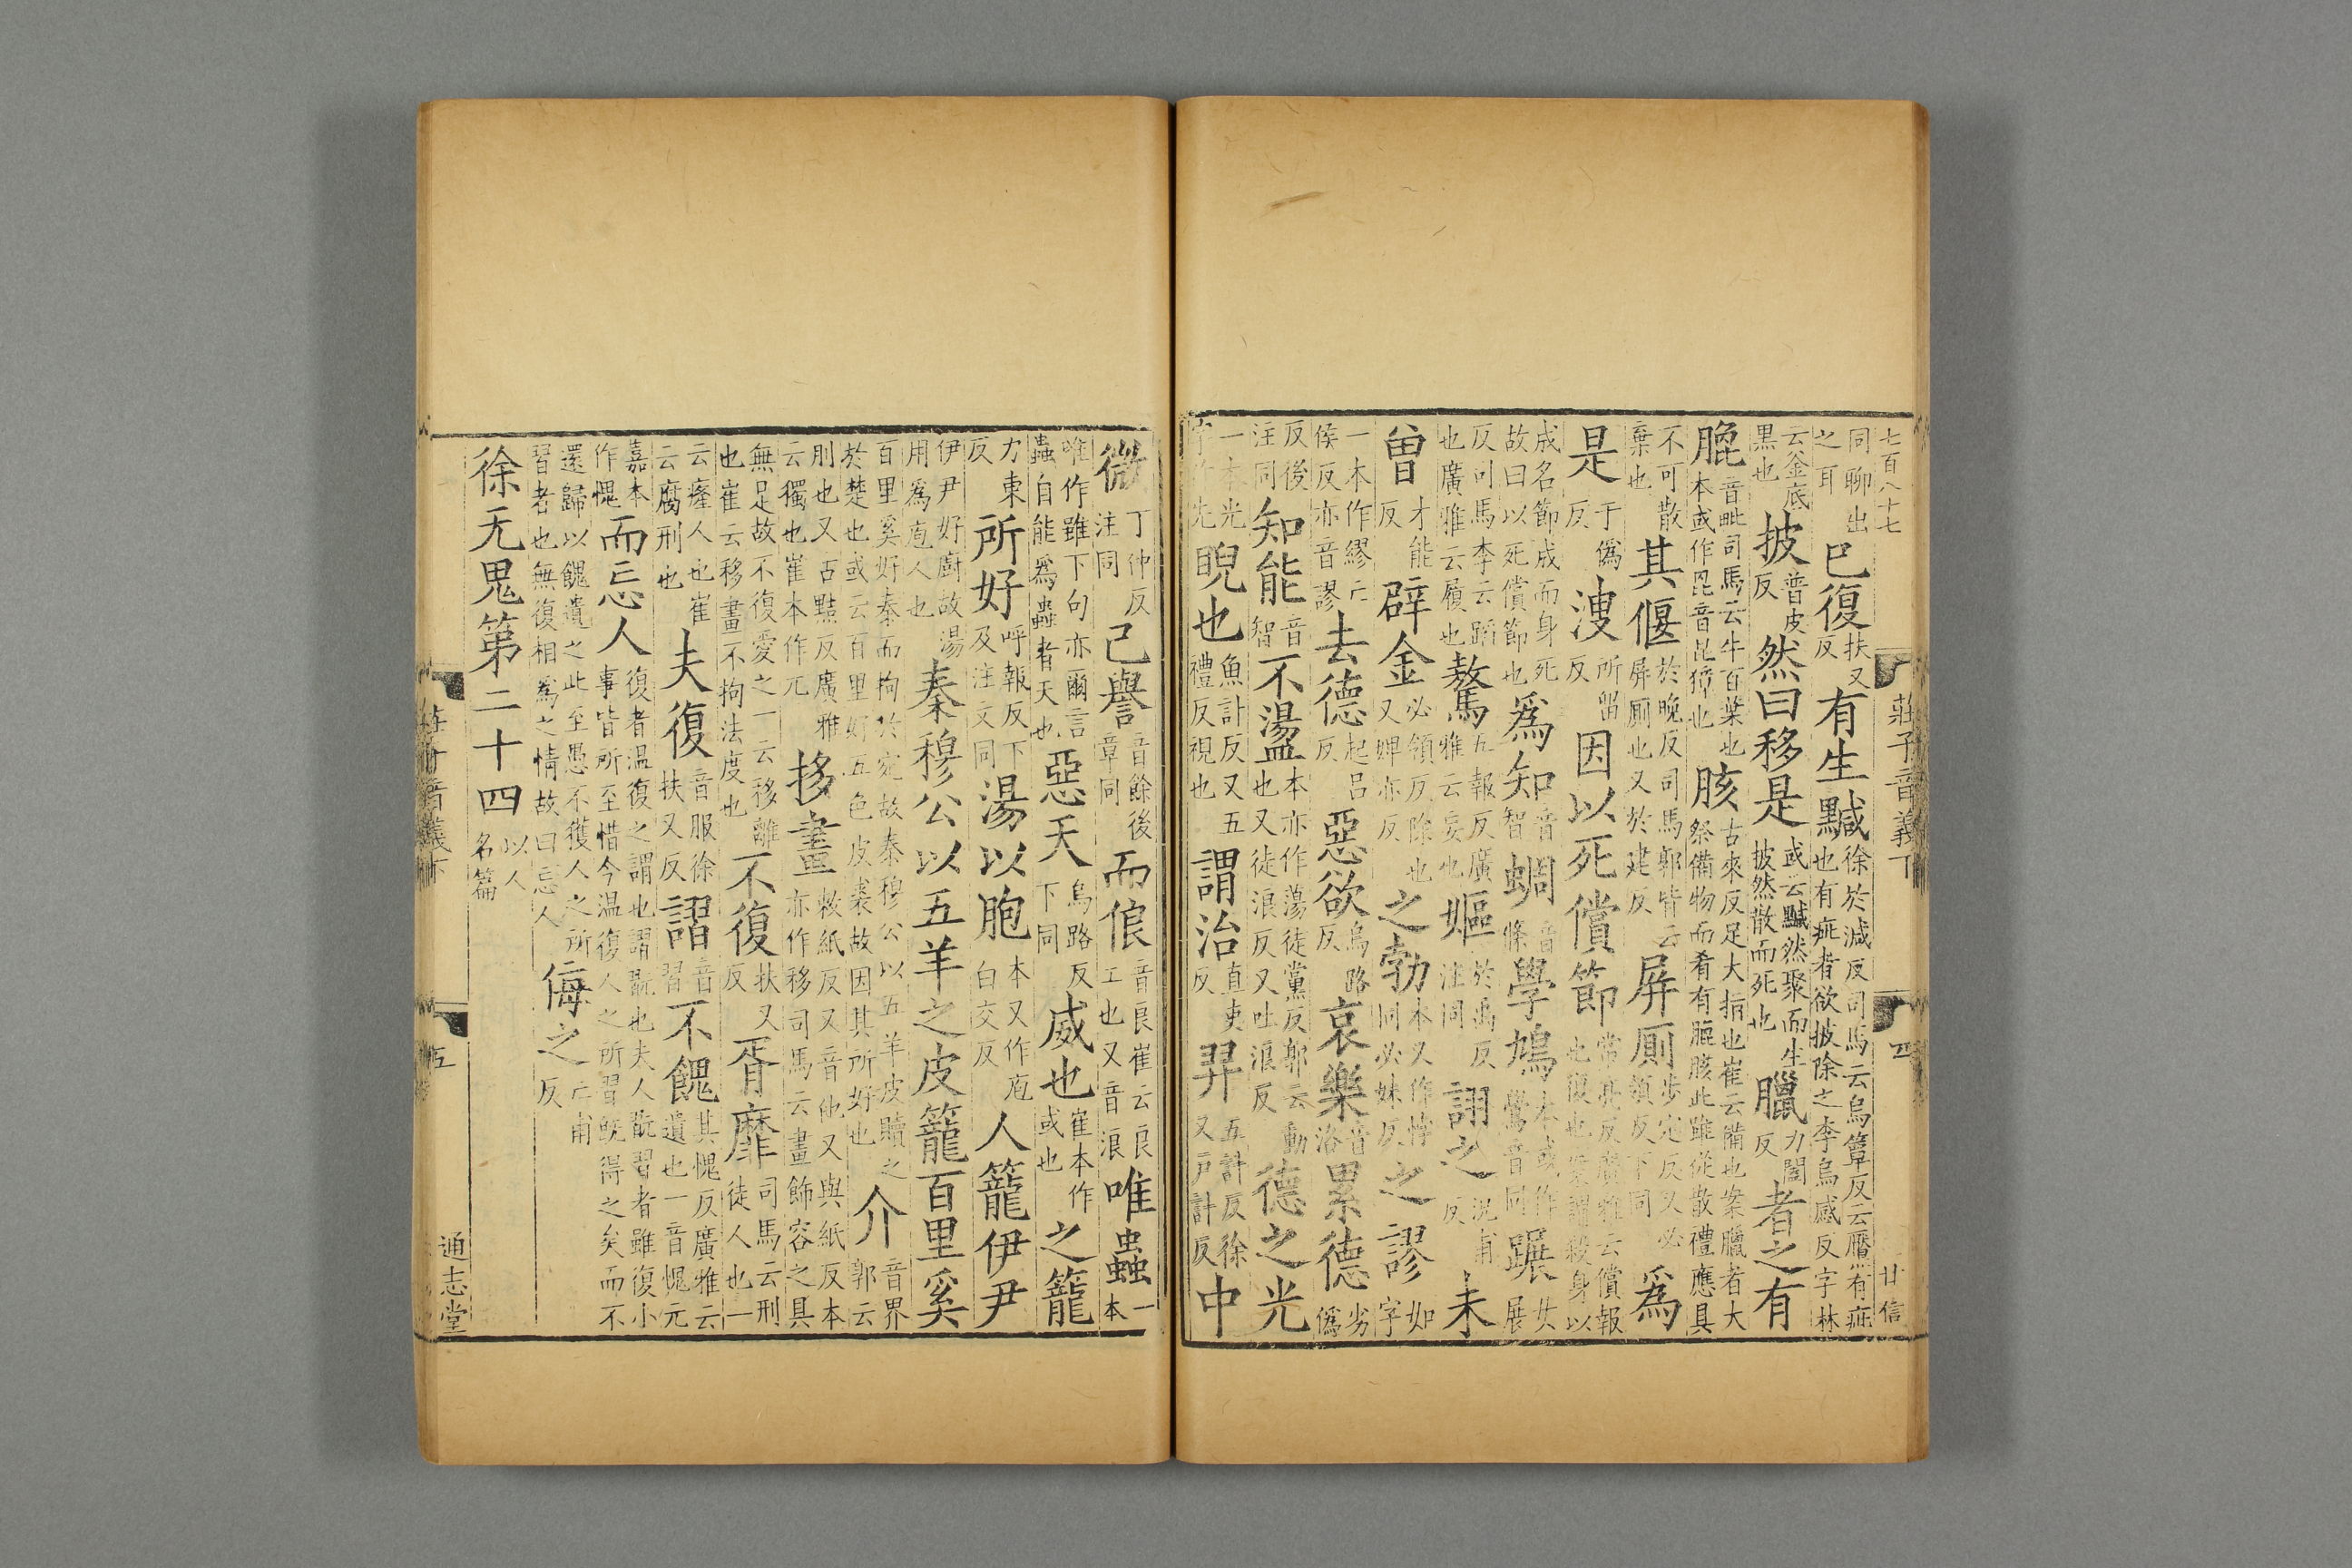 七百八十七 莊子音義下 四 廿信
同聊出之耳 已復扶又反 有生黬徐於減反司馬云烏簟反云黶有疵也有疵者欲披除之李烏感反字林
云釜底黑也 披普皮反 然曰移是或云黬然聚而生披然散而死也 臘力闔反 者之有
膍音毗司馬云牛百葉也本或作𣬈音毗獐也 胲古來反足大指也崔云備也案臘者大祭備物而肴有膍胲此雖從散禮應具
不可散棄也 其偃於晚反司馬郭皆云屏廁也又於建反 屏廁步定反又必領反下同 爲
是于僞反 溲所留反 因以死償節常亮反廣雅云償報也復也案謂殺身以
成名節成而身死故曰以死償節也 爲知音智 蜩音條 學鳩本或作鷽音同 蹍女展
反司馬李云蹈也廣雅云履也 驁五報反廣雅云妄也 嫗於禹反注同 詡之況甫反 未
曾才能反 辟金必領反除也又婢亦反 之勃本又作悖同必妹反 之謬如字
一本作繆亡侯反亦音謬 去德起呂反 惡欲烏路反 哀樂音洛 累德劣僞
反後注同 知能音智 不盪本亦作蕩徒黨反郭云動也又徒浪反又吐浪反 德之光
一本光字作先 睨也魚計反又五禮反視也 謂治直吏反 羿五計反徐又戶計反 中
微丁仲反注同 己譽音餘後章同 而俍音良崔云良工也又音浪 唯蟲一本
唯作雖下句亦爾言蟲自能爲蟲者天也 惡天烏路反下同 威也崔本作或也 之籠
力東反 所好呼報反下及注文同 湯以胞本又作庖白交反 人籠伊尹
伊尹好廚故湯用爲庖人也 秦穆公以五羊之皮籠百里奚
百里奚好秦而拘於宛故秦穆公以五羊皮贖之於楚也或云百里好五色皮裘故因其所好也 介音界郭云
刖也又古黠反廣雅云獨也崔本作兀 拸畫敕紙反又音他又與紙反本亦作移司馬云畫飾容之具
無足故不復愛之一云移離也崔云移畫不拘法度也 不復扶又反 胥靡徒人也一司馬云刑
云癃人也崔云腐刑也 夫復音服徐扶又反 謵音習 不餽其愧反廣雅云遺也一音愧元
嘉本作愧 而忘人復者温復之謂也謵翫也夫人翫習者雖復小事皆所至惜今温復人之所習既得之矣而不
還歸以餽遺之此至愚不獲人之所習者也無復相爲之情故曰忘人 侮之亡甫反
徐无鬼第二十四以人名篇
莊子音義下 五 通志堂